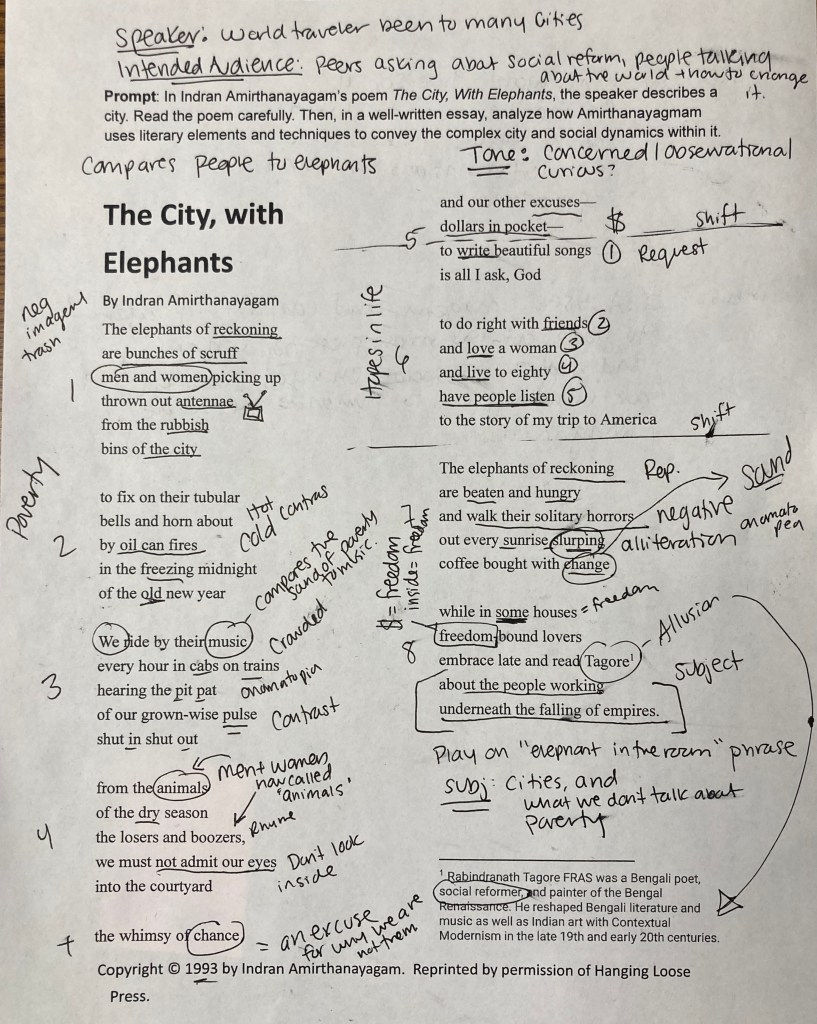 Speaker: World traveler been to many Cities
Intended Audience: Peers asking abat social reform, people talking
abat the world + how to change
it.
Prompt: In Indran Amirthanayagam's poem The City, With Elephants, the speaker describes a
city. Read the poem carefully. Then, in a well-written essay, analyze how Amirthanayagmam
uses literary elements and techniques to convey the complex city and social dynamics within it.
Compares people to elephants
Tone: Concerned / oosewrational
Curious?
The City, with
Elephants
By Indran Amirthanayagam
neg
imagery
trash
1
The elephants of reckoning
are bunches of scruff
men and women picking up
thrown out antennae
from the rubbish
bins of the city
Poverty
2
to fix on their tubular
bells and horn about
by oil can fires
in the freezing midnight
of the old new year
Hot
Cold contras
Compares the
sand of poverty
to music.
3
We ride by their music
every hour in cabs on trains
hearing the pit pat
of our grown-wise pulse
shut in shut out
Crowded
onamatopia
Contrast
4
from the animals
of the dry season
the losers and boozers,
we must not admit our eyes
into the courtyard
Men + women
now called
"animals"
Rhyme
Don't look
inside
the whimsy of chance
= an excuse
for why we are
not them
and our other excuses—
dollars in pocket—
to write beautiful songs
is all I ask, God
5
$
shift
① Request
Hopes in life
6
to do right with friends ②
and love a woman ③
and live to eighty ④
have people listen ⑤
to the story of my trip to America
shift
7
The elephants of reckoning
are beaten and hungry
and walk their solitary horrors
out every sunrise slurping
coffee bought with change
Rep.
negative
alliteration
Sand
onomato
pea
$ = freedom
inside = freedom
8
while in some houses
freedom-bound lovers
embrace late and read Tagore¹
about the people working
underneath the falling of empires.
= freedom
Allusion
subject
Play on "elephant in the room" phrase
subj: Cities, and
what we don't talk about
Poverty
¹ Rabindranath Tagore FRAS was a Bengali poet,
social reformer, and painter of the Bengal
Renaissance. He reshaped Bengali literature and
music as well as Indian art with Contextual
Modernism in the late 19th and early 20th centuries.
Copyright © 1993 by Indran Amirthanayagam. Reprinted by permission of Hanging Loose
Press.